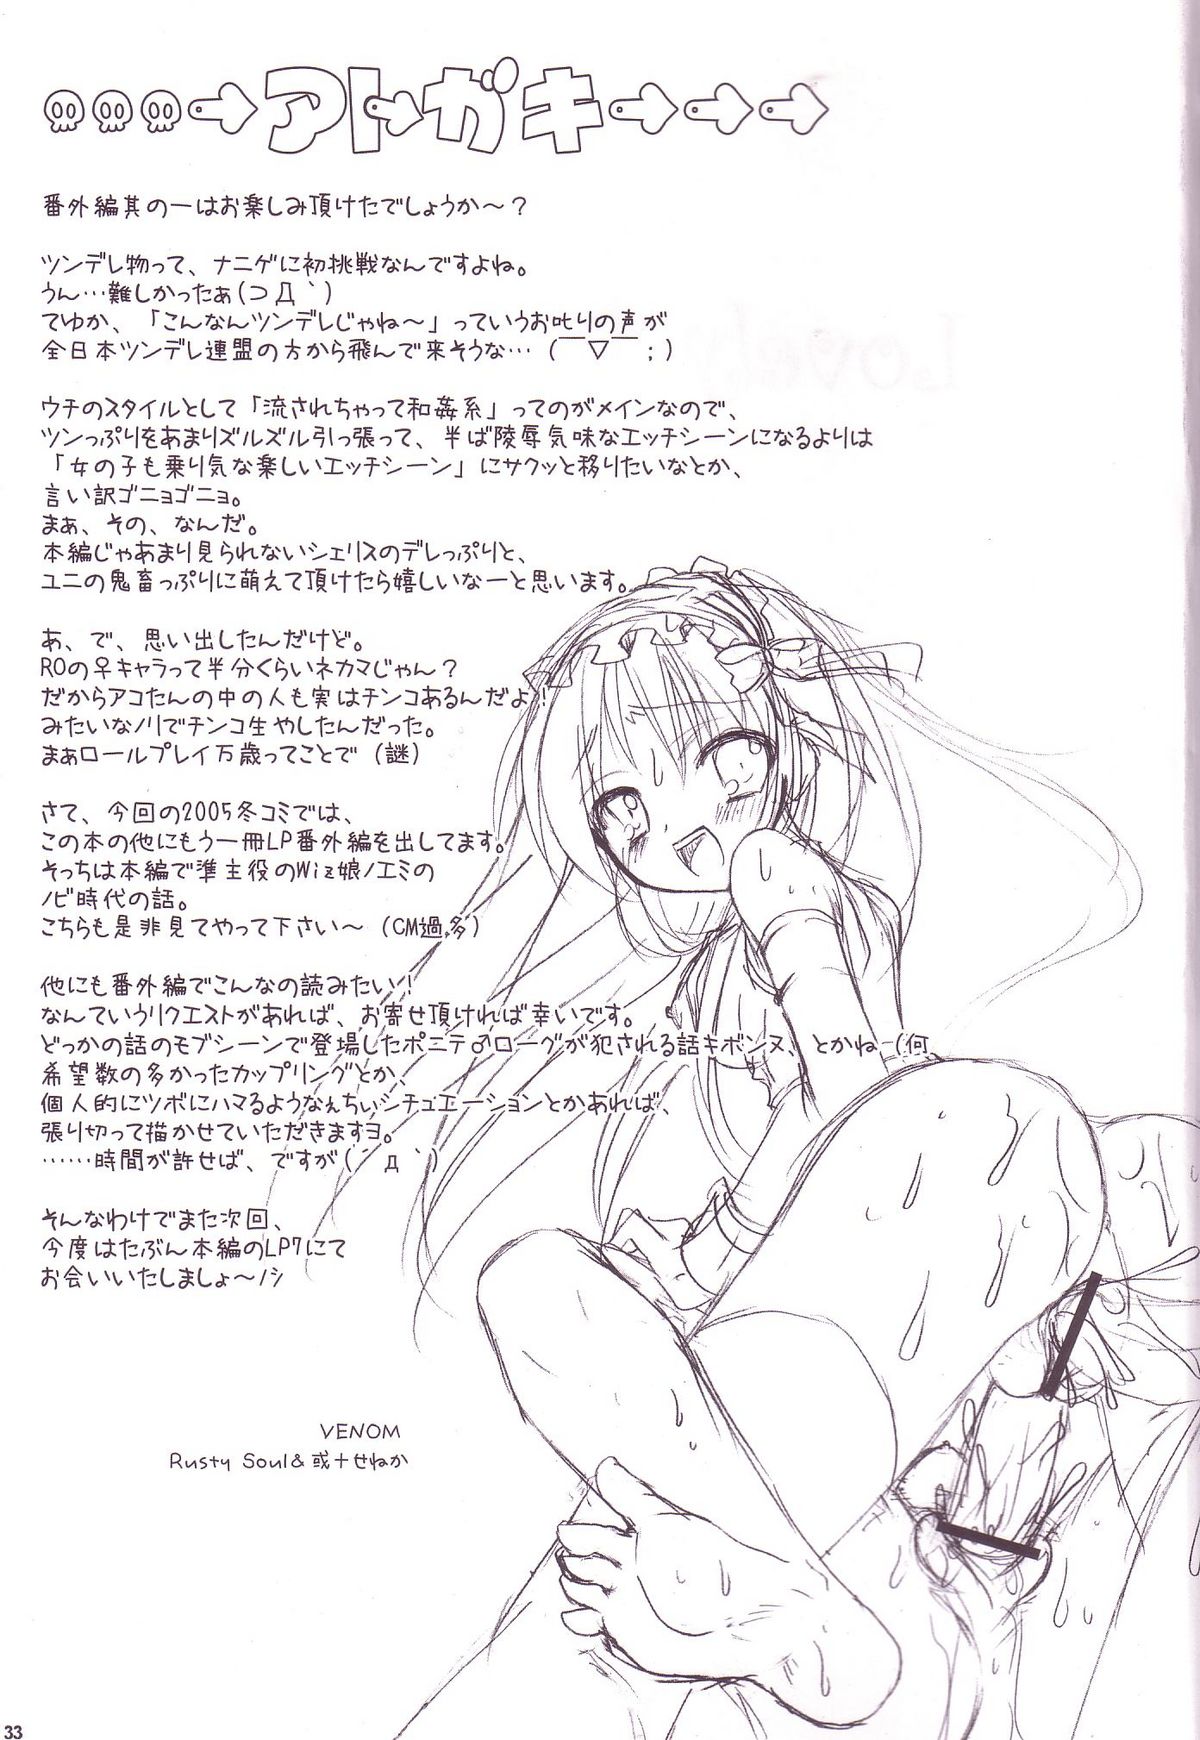 アトガキ
番外編其の一はお楽しみ頂けたでしょうか～？
ツンデレ物って、ナニゲに初挑戦なんですよね。
うん…難しかったぁ(つД｀)
てゆか、「こんなんツンデレじゃね～」っていうお叱りの声が
全日本ツンデレ連盟の方から飛んで来そうな…(￣▽￣；)
ウチのスタイルとして「流されちゃって和姦系」ってのがメインなので、
ツンっぷりをあまりズルズル引っ張って、半ば陵辱気味なエッチシーンになるよりは
「女の子も乗り気な楽しいエッチシーン」にサクッと移りたいなとか、
言い訳ゴニョゴニョ。
まぁ、その、なんだ。
本編じゃあまり見られないシェリスのデレっぷりと、
ユニの鬼畜っぷりに萌えて頂けたら嬉しいなーと思います。
あ、で、思い出したんだけど。
ROの♀キャラって半分くらいネカマじゃん？
だからアコたんの中の人も実はチンコあるんだよ！
みたいなノリでチンコ生やしたんだった。
まぁロールプレイ万歳ってことで（謎）
さて、今回の2005冬コミでは、
この本の他にもう一冊LP番外編を出してます。
そっちは本編で準主役のWiz娘ノエミの
ノビ時代の話。
こちらも是非見てやって下さい～（CM過多）
他にも番外編でこんなの読みたい！
なんていうリクエストがあれば、お寄せ頂ければ幸いです。
どっかの話のモブシーンで登場したポニテ♂ローグが犯される話キボンヌ、とかね（何
希望数の多かったカップリングとか、
個人的にツボにハマるようなえちぃシチュエーションとかあれば、
張り切って描かせていただきますヨ。
……時間が許せば、ですが(´д｀)
そんなわけでまた次回、
今度はたぶん本編のLP7にて
お会いいたしましょ～ノシ
VENOM
Rusty Soul＆或十せねか
33